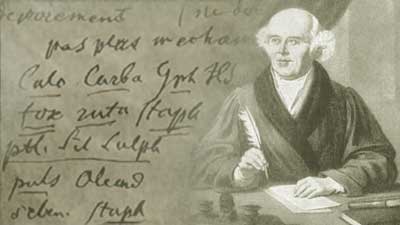 pas plus mechan
Calc Carba Gph HS
tox ruta Staph
pth. Sil Sulph
puls Oleand
staph